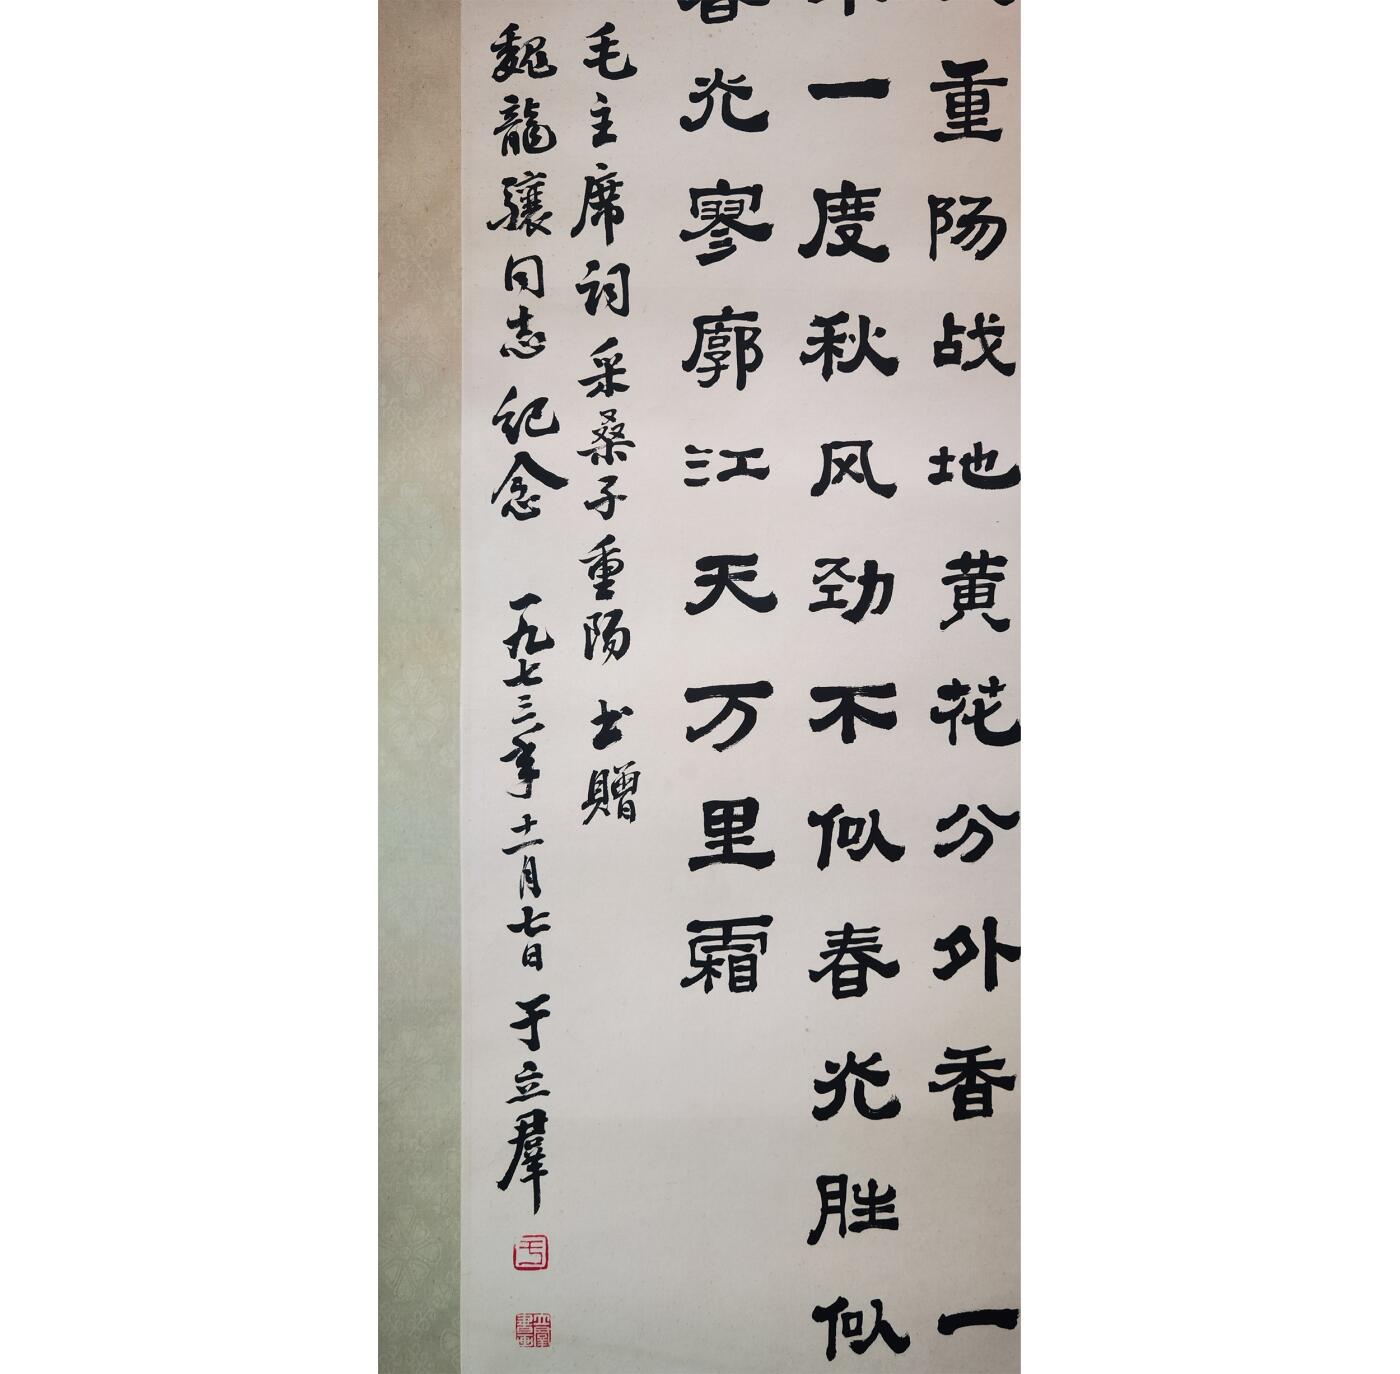 重阳战地黄花分外香一
一度秋风劲不似春光胜似
春光寥廓江天万里霜
毛主席词采桑子重阳书赠
魏龙骧同志纪念一九七三年十一月七日于立群